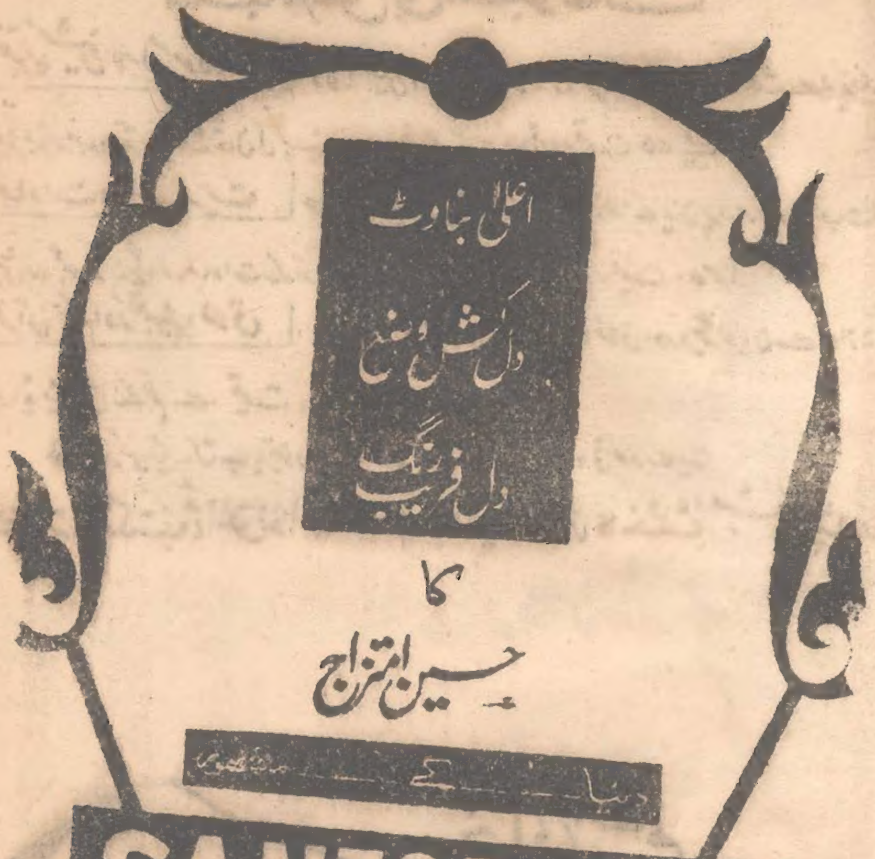 اعلیٰ بناوٹ
دل کش وضع
دل فریب رنگ
کا
حسین امتزاج
دنیا کے